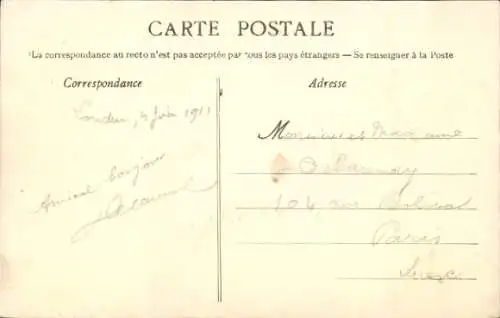 CARTE POSTALE
La correspondance au recto n'est pas acceptée par tous les pays étrangers — Se renseigner à la Poste
Correspondance
Adresse
1911
Amical bonjour
Monsieur et Madame
Delaunay
104
Paris